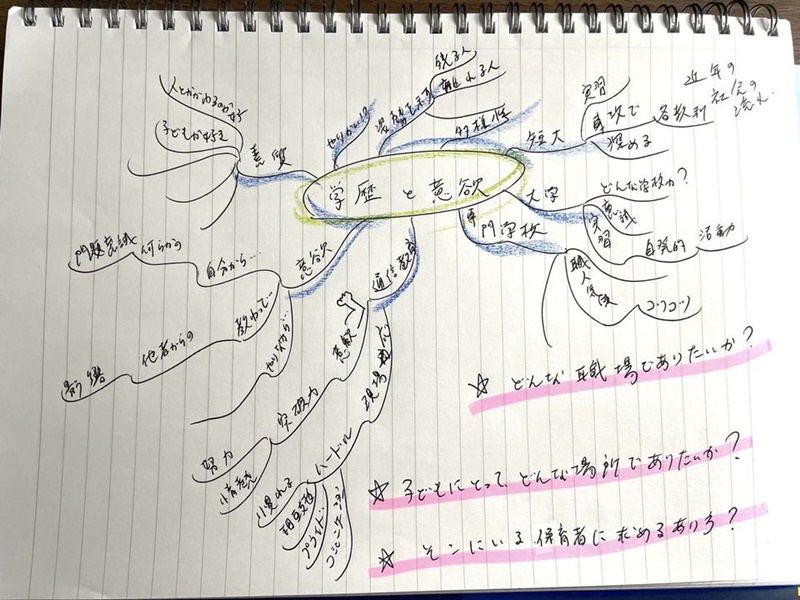 学歴と意欲
やりがい!?
姿勢を示す
残る人
離れる人
多様性
短大
実習
専攻で
深める
各教科
近年の
社会の
流れ
大学
どんな学校か?
意識
実習
自発的
活動
専門学校
職人気質
コツコツ
通信教育
意欲
突破力
努力
情熱
現場
ハードル
小慣れる
相互支援
プライド
コミュニケーション
意欲
自分から…
何らかの
問題意識
教わって…
他者からの
影響
やりながら…
素質
人とかかわるのが好き
子どもが好き
☆ どんな職場でありたいか?
☆ 子どもにとって、どんな場所でありたいか?
☆ そこにいる保育者に求めるあり方?